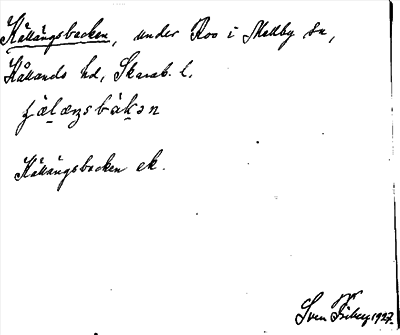 Källängsbacken, under Roo i Mellby sn,
Kållands hd, Skarab. l.
Källängsbacken ek.
Sven Friberg 1927.